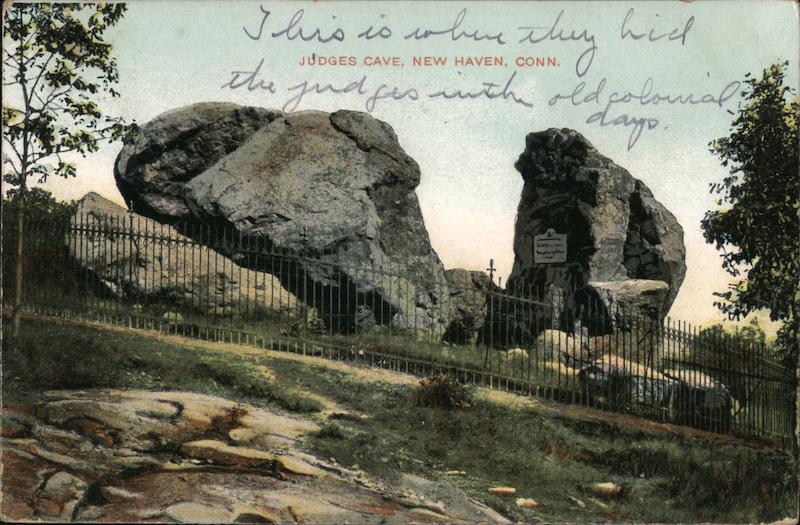 This is where they hid
JUDGES CAVE, NEW HAVEN, CONN.
the judges in the old colonial
days.